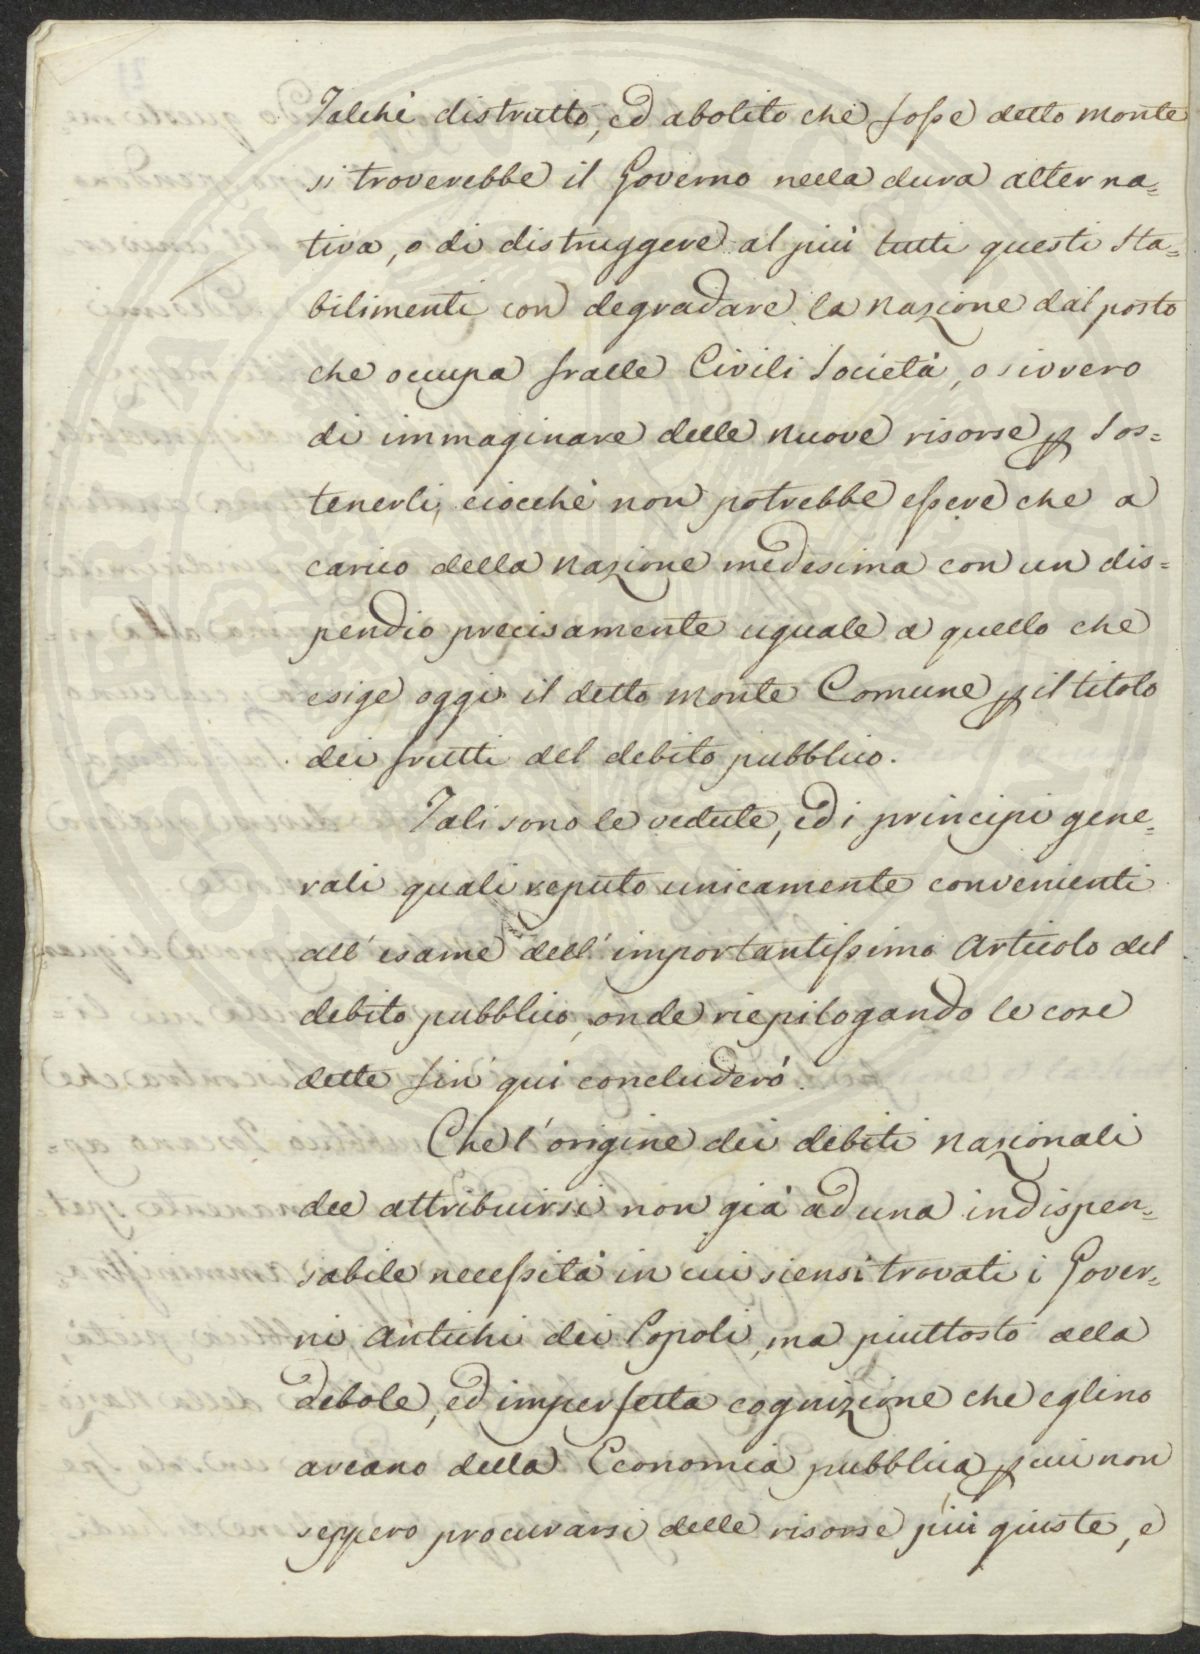 Talchè distrutto, ed abolito che fosse detto monte
si troverebbe il Governo nella dura alterna=
tiva, o di distruggere al più tutti questi sta=
bilimenti con degradare la nazione dal posto
che occupa fralle Civili Società, o sivvero
di immaginare delle nuove risorse p sos=
tenerli, ciocchè non potrebbe essere che a
carico della nazione medesima con un dis=
pendio precisamente uguale a quello che
esige oggi il detto monte Comune p il titolo
dei frutti del debito pubblico.
Tali sono le vedute, ed i principi gene=
rali quali reputo unicamente convenienti
all' esame dell' importantissimo Articolo del
debito pubblico, onde riepilogando le cose
dette fin' qui concluderò.
Che l' origine dei debiti nazionali
dee attribuirsi non già ad una indispen=
sabile necessità in cui siensi trovati i Gover=
ni Antichi dei Popoli, ma piuttosto alla
debole, ed imperfetta cognizione che eglino
aveano della Economia pubblica, p cui non
seppero procurarsi delle risorse più giuste, e